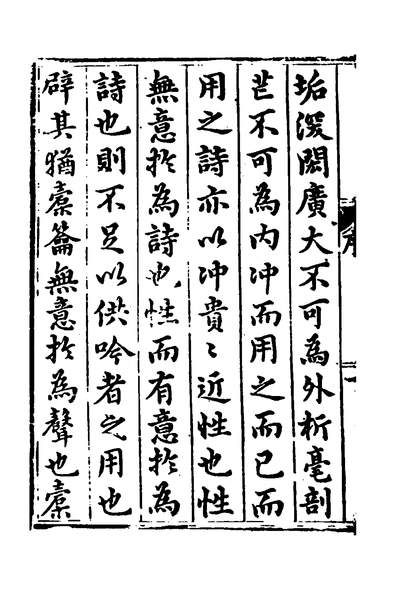 垢漠閎廣大不可為外析毫剖
芒不可為内冲而用之而已而
用之詩亦以冲貴〻近性也性
無意扵為詩也性而有意扵為
詩也則不足以供吟者之用也
辟其猶橐籥無意扵為聲也橐